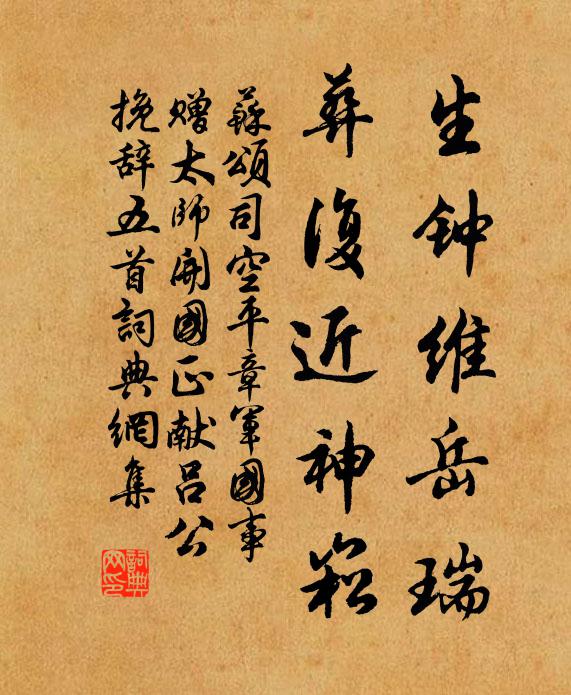 生钟维岳瑞
葬復近神崧
蘇頌司空平章軍國事
贈太师開國正献吕公
挽辞五首詞典網集
詞典网印